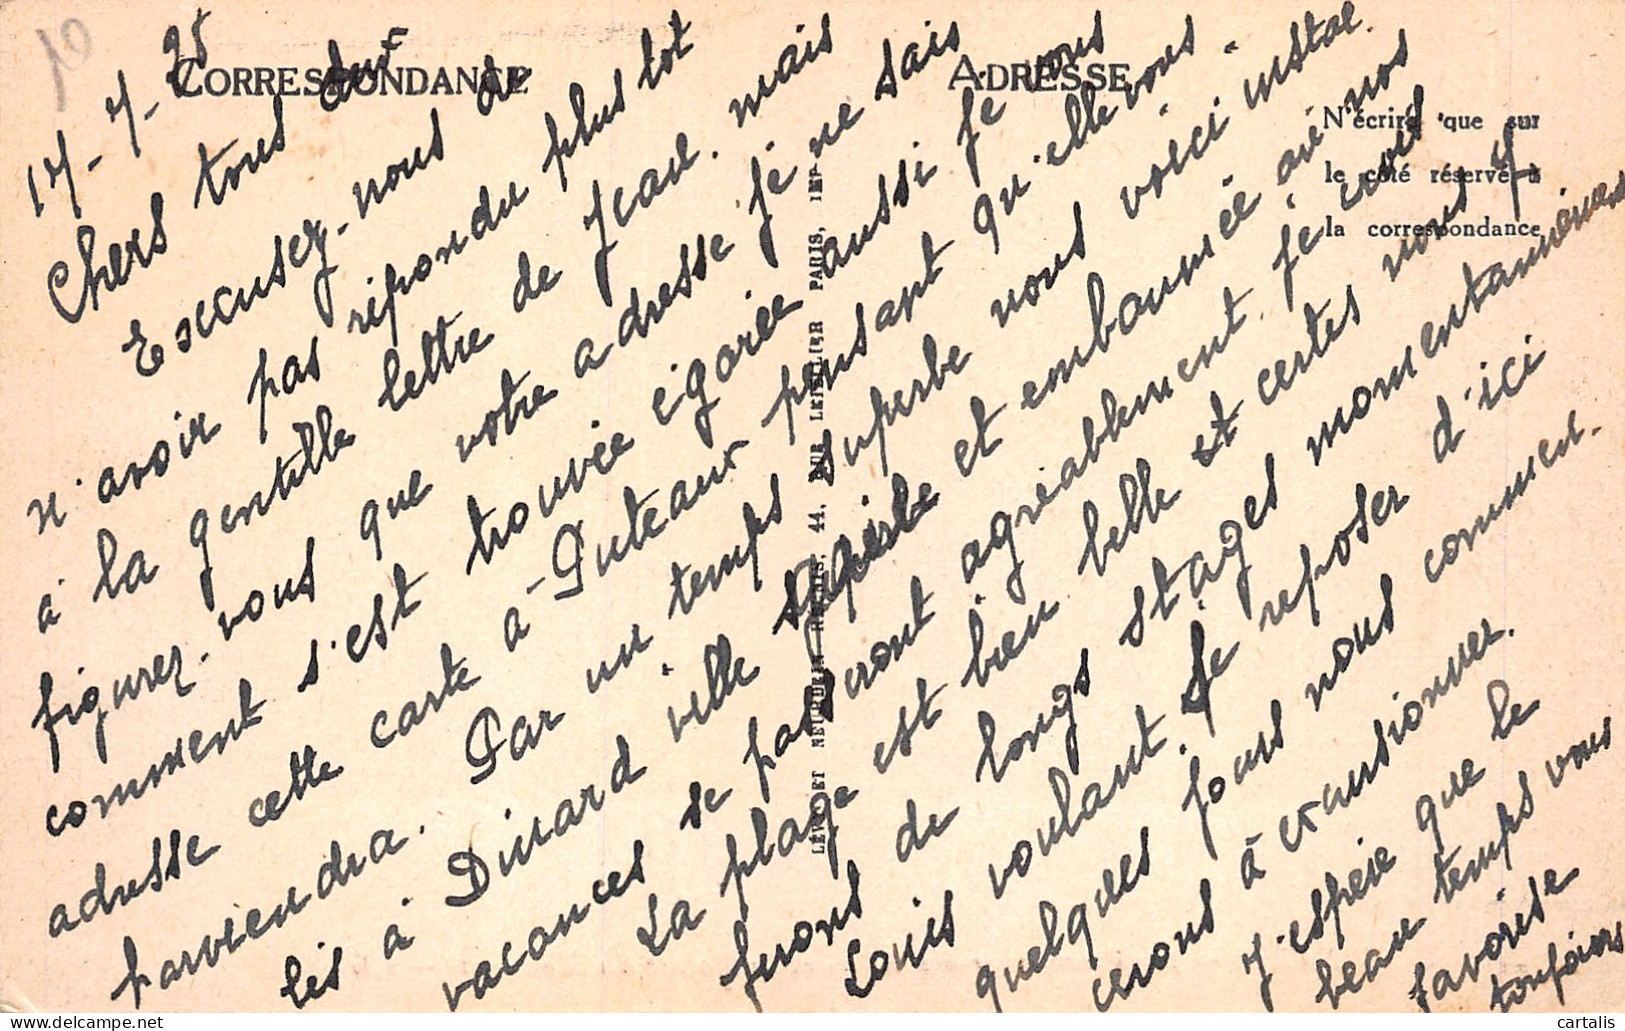 10
CORRESPONDANCE
ADRESSE
N'écrire que sur
le côté réservé à
la correspondance
LÉVY ET NEURDEIN RÉUNIS, 44, RUE LETELLIER PARIS, IMP
17-7-25
Chers tous deux
Excusez-nous de
n'avoir pas répondu plus tot
à la gentille lettre de Jean. mais
figurez-vous que votre adresse je ne sais
comment s'est trouvée égarée aussi je vous
adresse cette carte à Puteaux pensant qu'elle vous
parviendra. Par un temps superbe nous voici instal.
lés à Dinard ville et embaumée où nos
vacances se passeront agréablement. je crois
La plage est bien belle et certes nous y
ferons de longs stages momentanément
Louis voulant se reposer d'ici
quelques jours nous commen.
cerons à excursionner.
J'espère que le
beau temps vous
favorise
toujours
cartalis